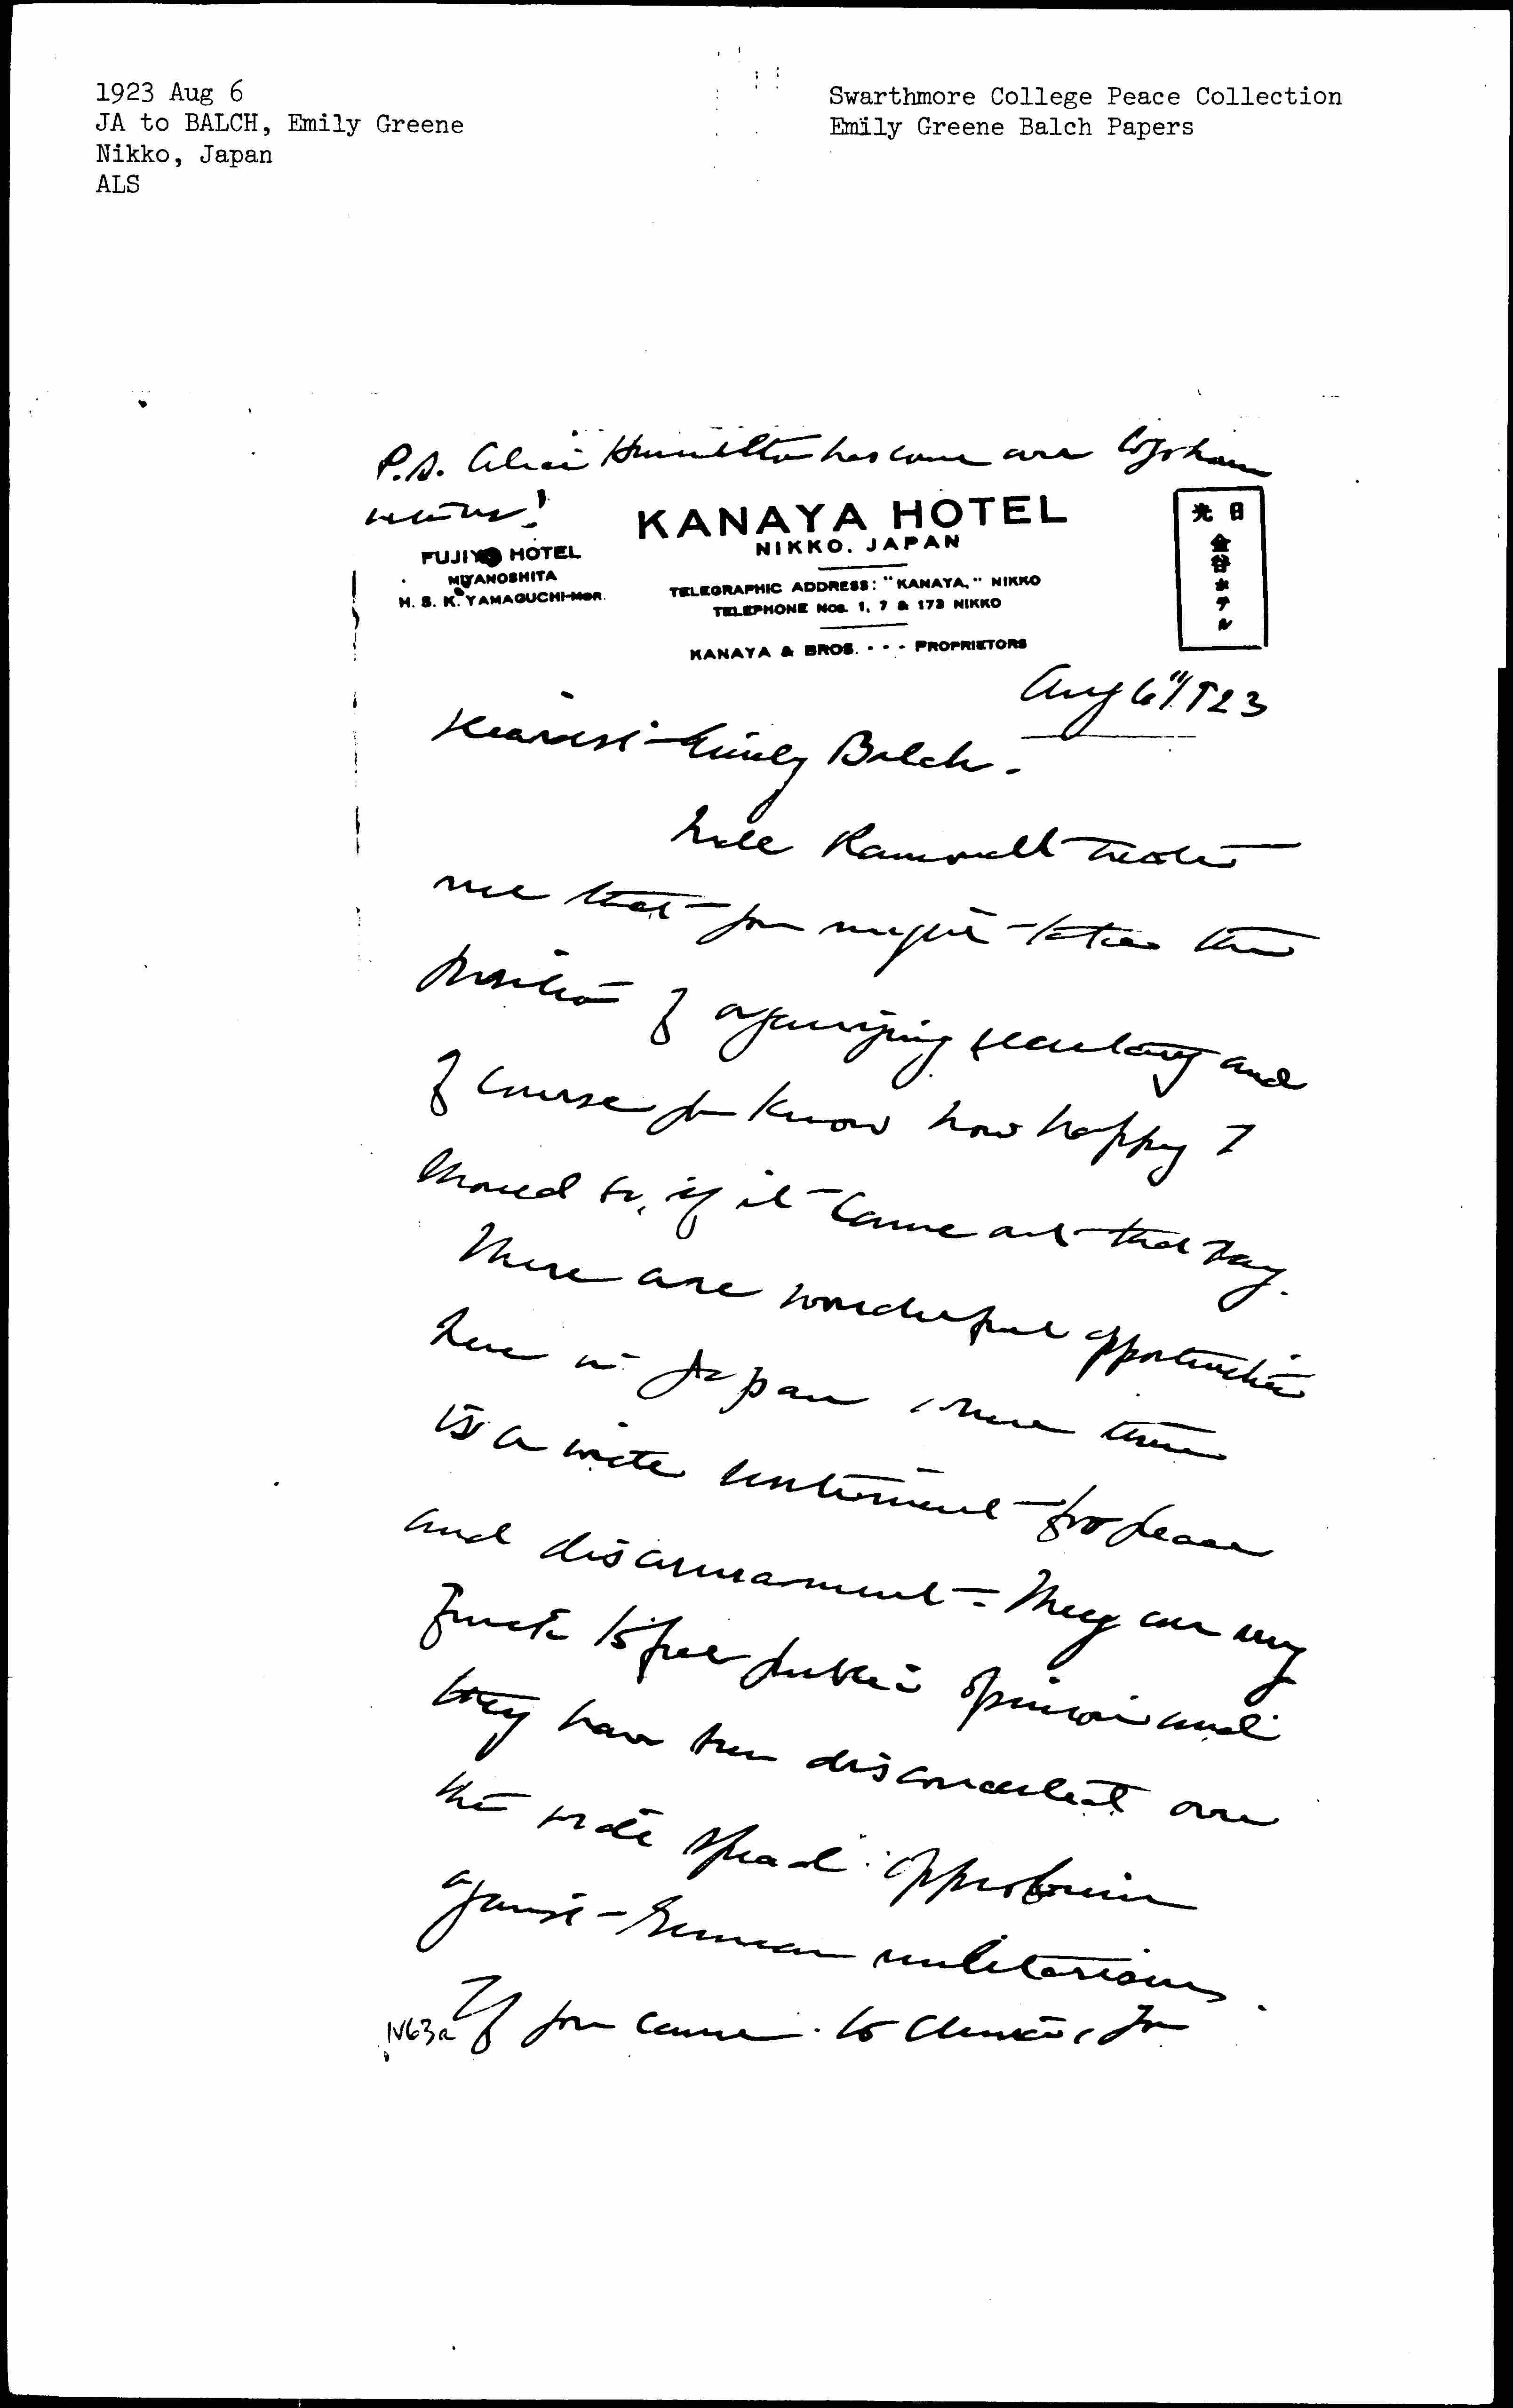 1923 Aug 6
JA to BALCH, Emily Greene
Nikko, Japan
ALS
Swarthmore College Peace Collection
Emily Greene Balch Papers
P.S. Alice Hamilton has come
with us!
KANAYA HOTEL
NIKKO, JAPAN
FUJIYA HOTEL
MIYANOSHITA
H. S. K. YAMAGUCHI-MGR.
TELEGRAPHIC ADDRESS: "KANAYA," NIKKO
TELEPHONE NOS. 1, 7 & 173 NIKKO
KANAYA & BROS. - - - PROPRIETORS
日光
金谷ホテル
Aug 6"/923
Dearest Emily Balch.
Mlle Ramondt writes
me that you might take the
position of organizing secretary and
of course you know how happy I
should be, if it came out that way.
There are wonderful opportunities
here in Japan where there
is a wide sentiment for peace
and disarmament - They are very
quick to feel public opinion and
they have been disconcerted over
the wide spread opprobrium
against German militarism.
IV63a If you came to